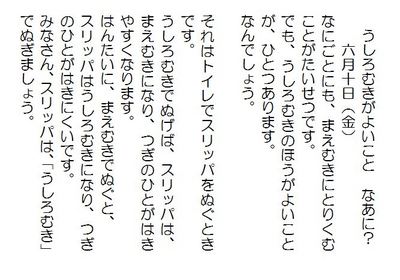 うしろむきがよいこと　なあに？
六月十日（金）
なにごとにも、まえむきにとりくむ
ことがたいせつです。
でも、うしろむきのほうがよいこと
が、ひとつあります。
なんでしょう。
それはトイレでスリッパをぬぐとき
です。
うしろむきでぬげば、スリッパは、
まえむきになり、つぎのひとがはき
やすくなります。
はんたいに、まえむきでぬぐと、
スリッパはうしろむきになり、つぎ
のひとがはきにくいです。
みなさん、スリッパは、「うしろむき」
でぬぎましょう。